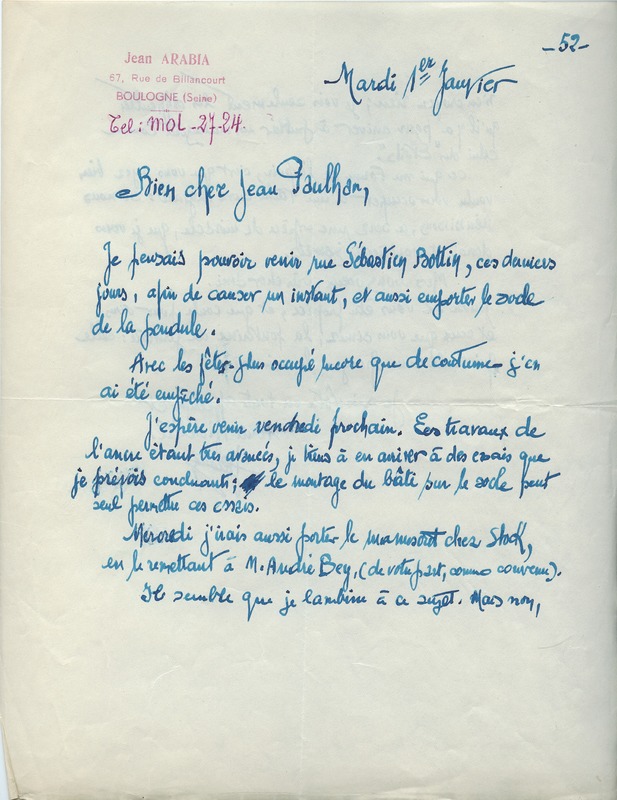 -52-
Jean ARABIA
67, Rue de Billancourt
BOULOGNE (Seine)
Tel: MOL-27-24.
Mardi 1er Janvier
Bien cher Jean Paulhan,
Je pensais pouvoir venir rue Sébastien Bottin, ces derniers
jours, afin de causer un instant, et aussi emporter le socle
de la pendule.
Avec les fêtes- plus occupé encore que de coutume- j'en
ai été empêché.
J'espère venir vendredi prochain. Les travaux de
l'ancre étant très avancés, je tiens à en arriver à des essais que
je prévois concluants; le montage du bâti sur le socle peut
seul permettre ces essais.
Mercredi j'irais aussi porter le manuscrit chez Stock,
en le remettant à M. André Bey, (de votre part, comme convenu).
Il semble que je lambine à ce sujet. Mais non,